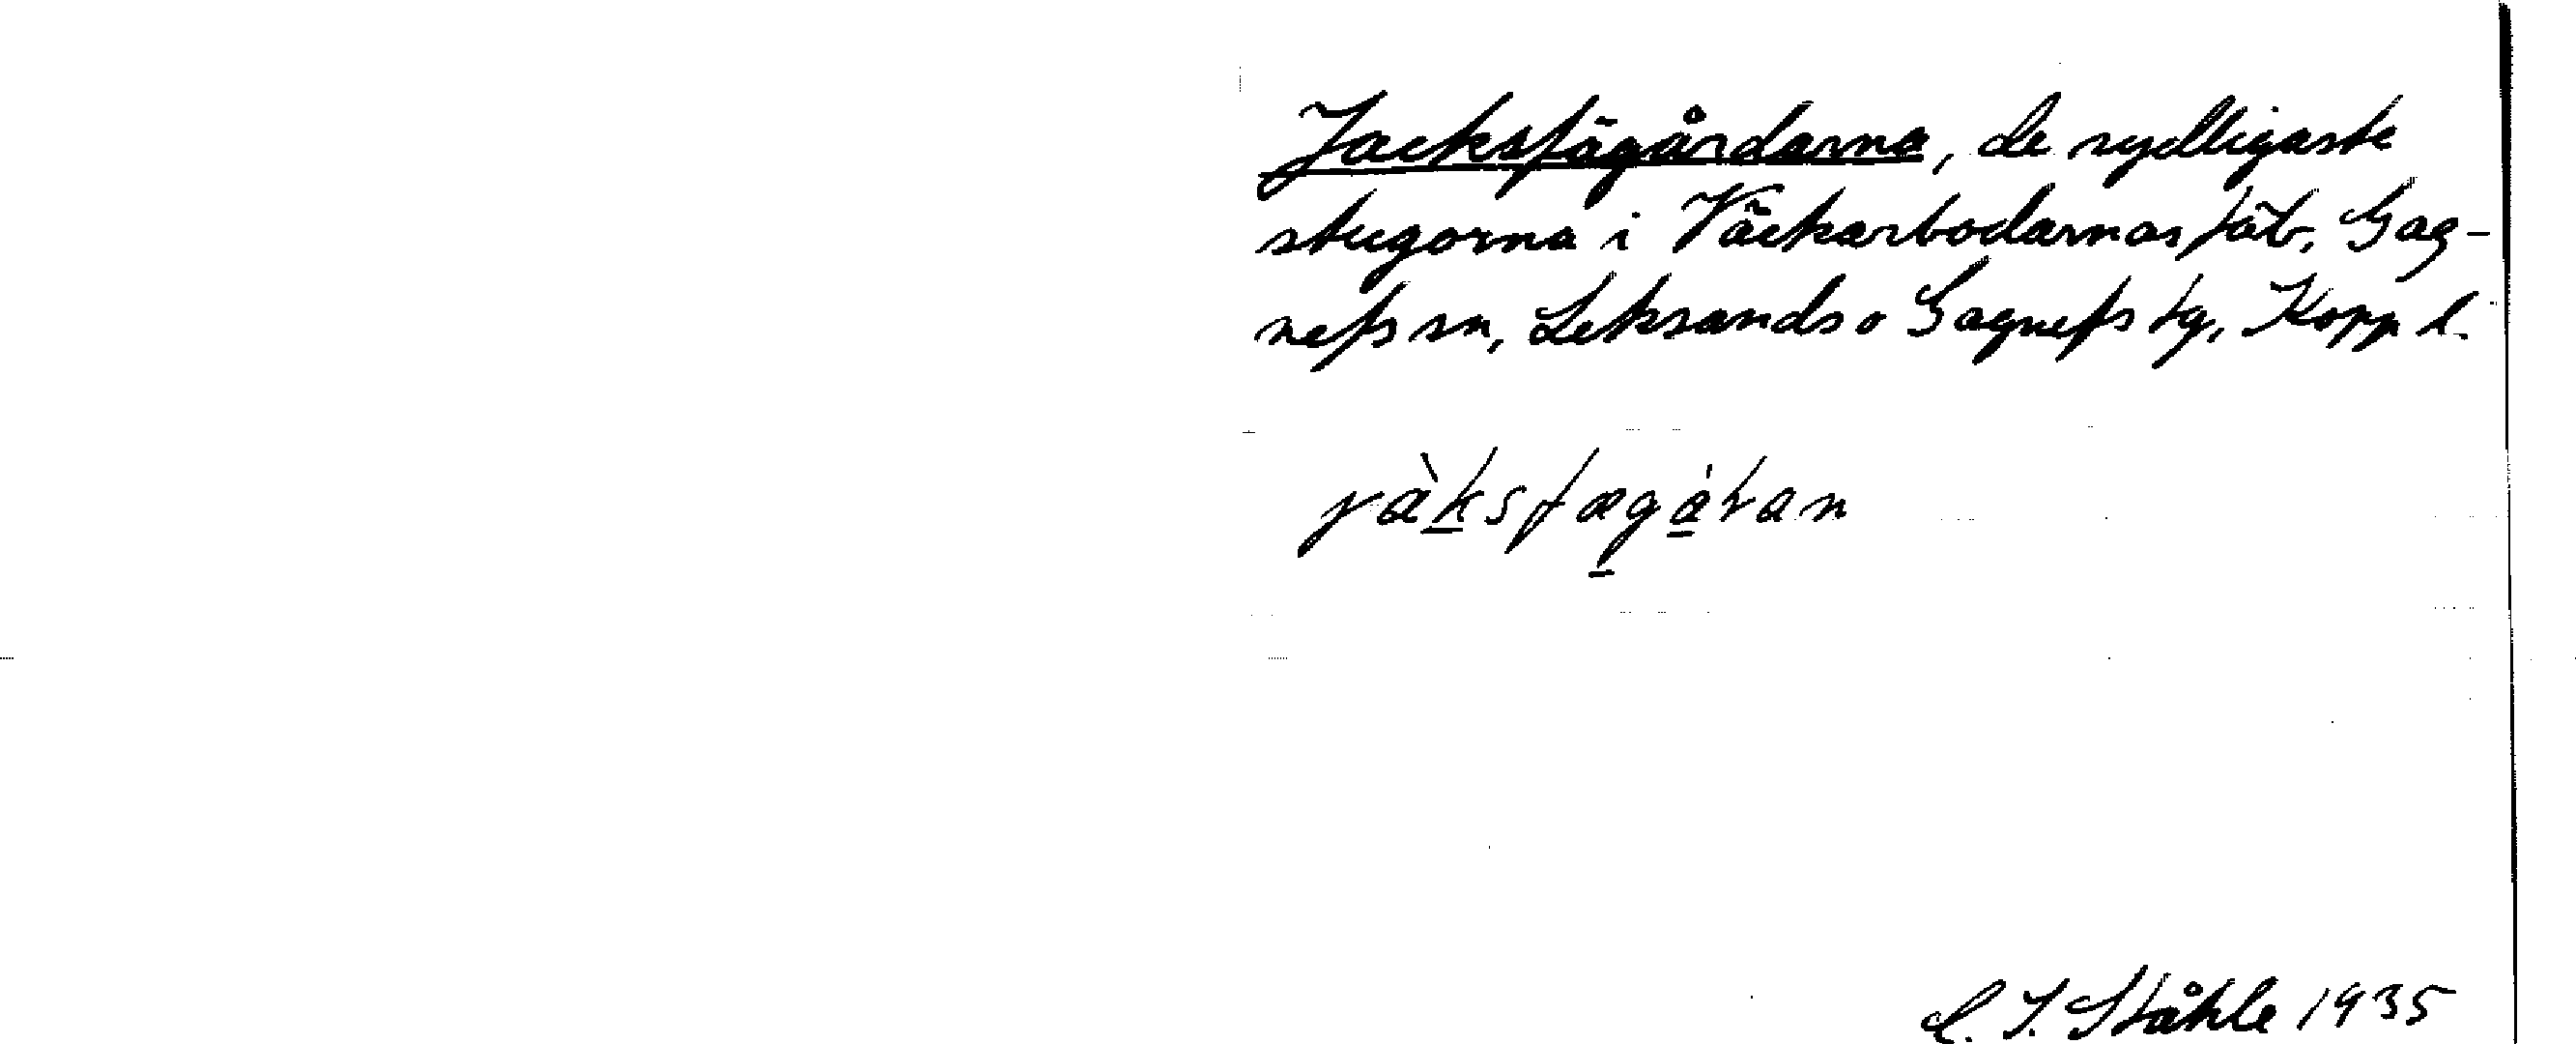 Jacksfägårdarna, de sydligaste
stugorna i Väckarbodarnas fäb, Gag-
nefs sn, Leksands o Gagnefs tg, Kopp l.
C. I. Ståhle 1935